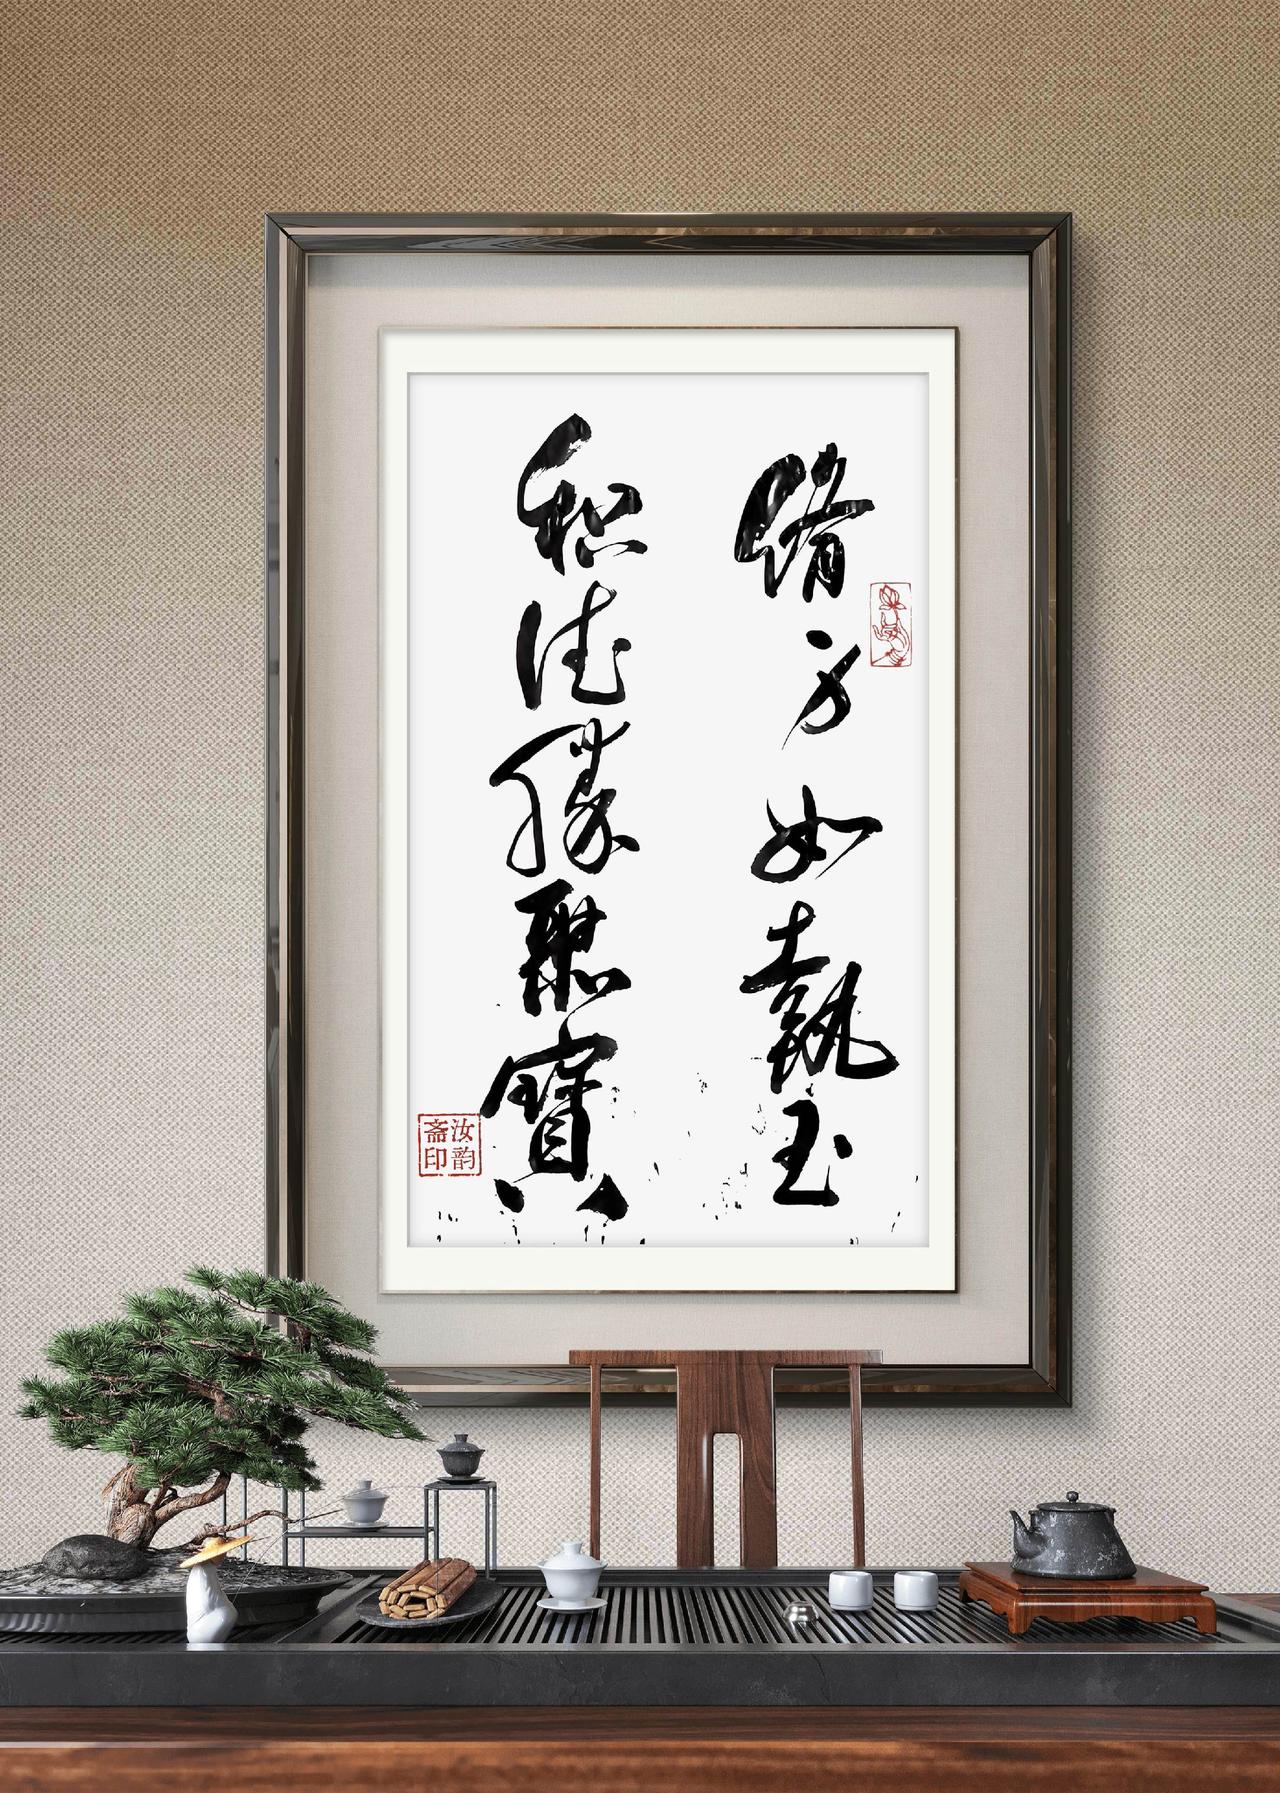 脩身如執玉
积德勝聚寶
汝韵
斋印